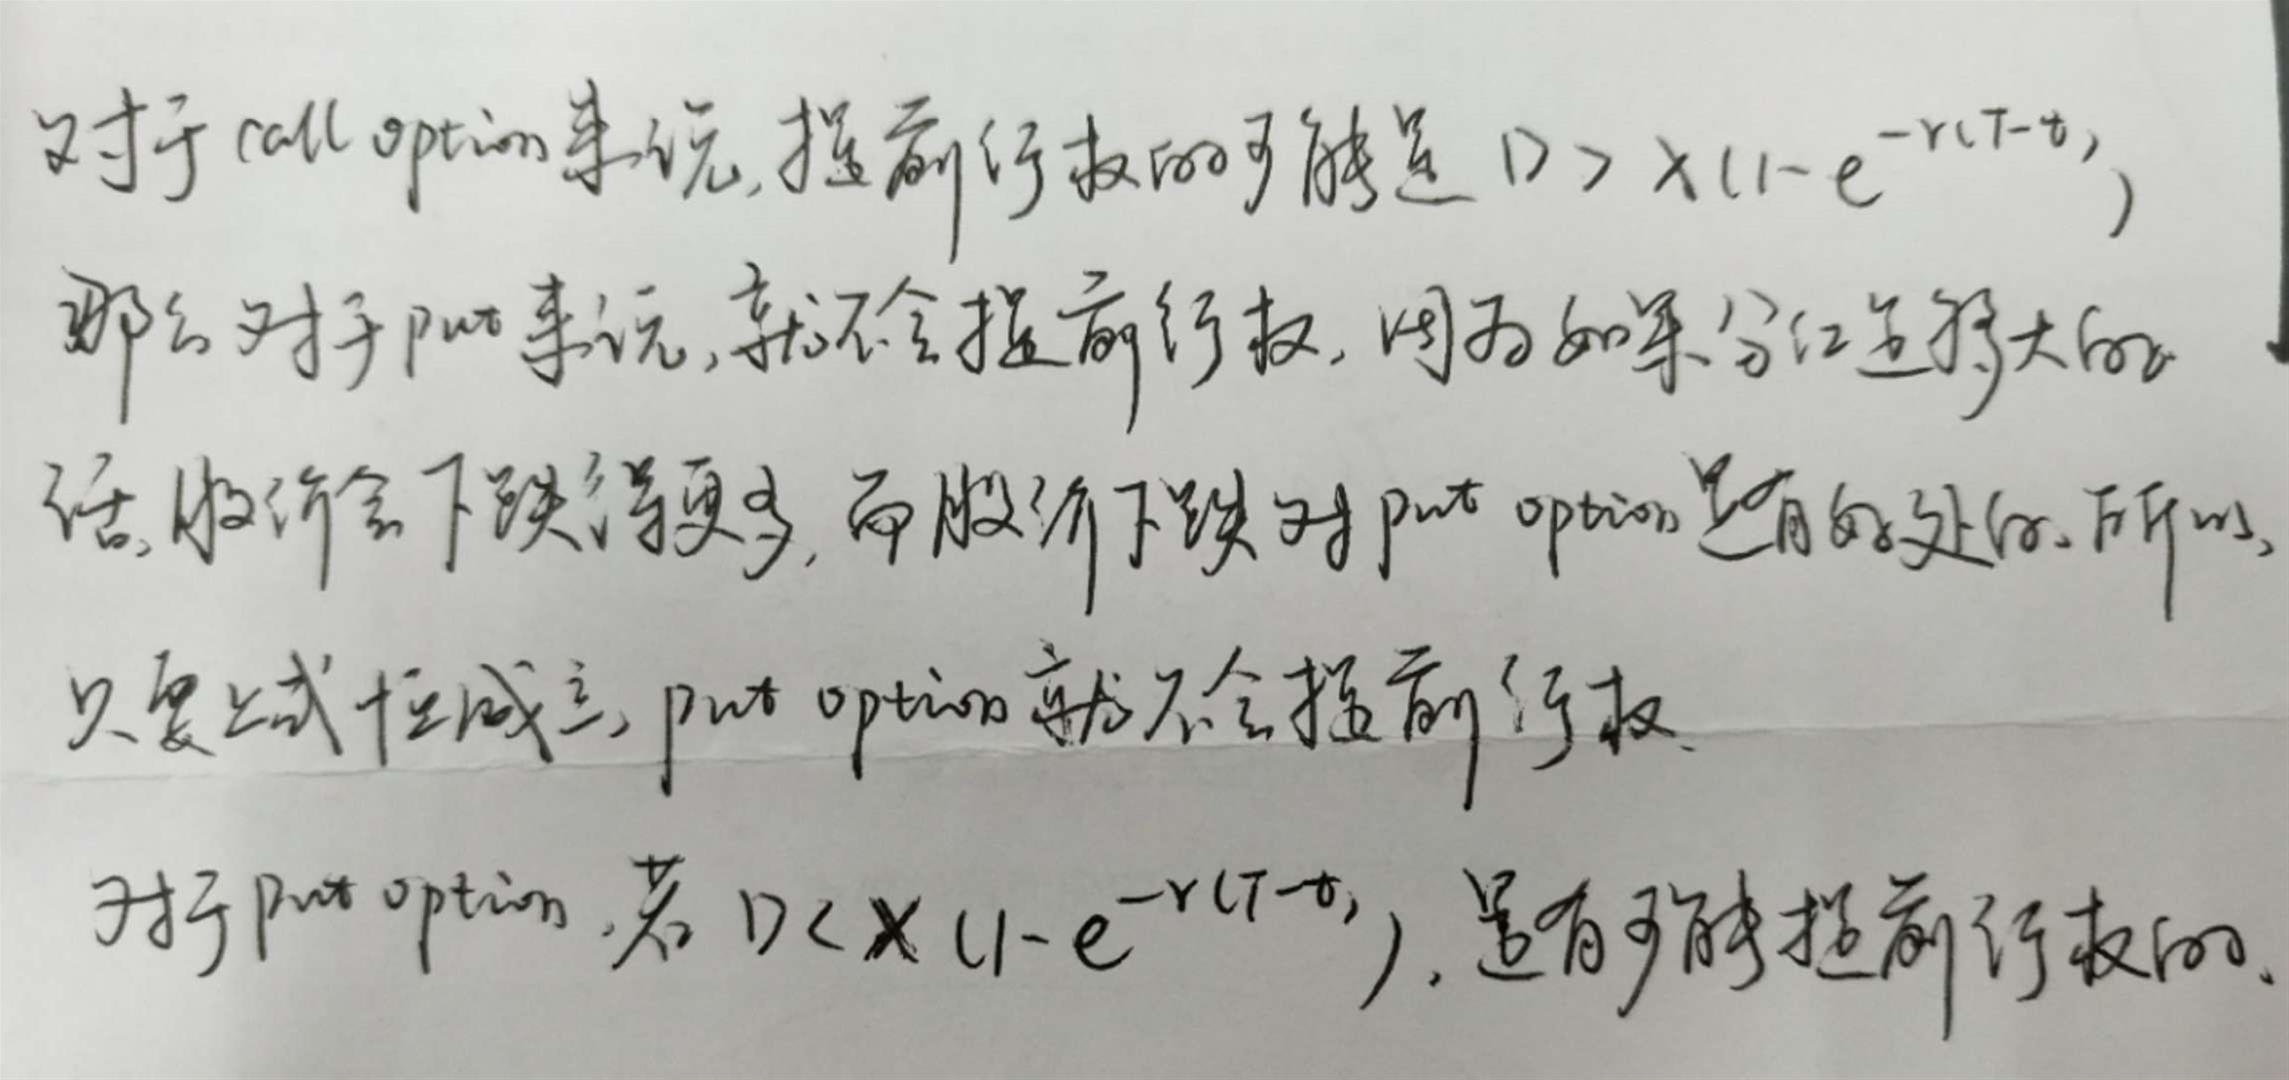 对于call option来说,提前行权的可能是 D > X(1-e^{-r(T-t)})
那么对于put来说,就不会提前行权,因为如果分红足够大的
话,股价会下跌得更多,而股价下跌对put option是有好处的,所以,
只要上式恒成立,put option就不会提前行权.
对于put option,若 D < X(1-e^{-r(T-t)}),是有可能提前行权的.